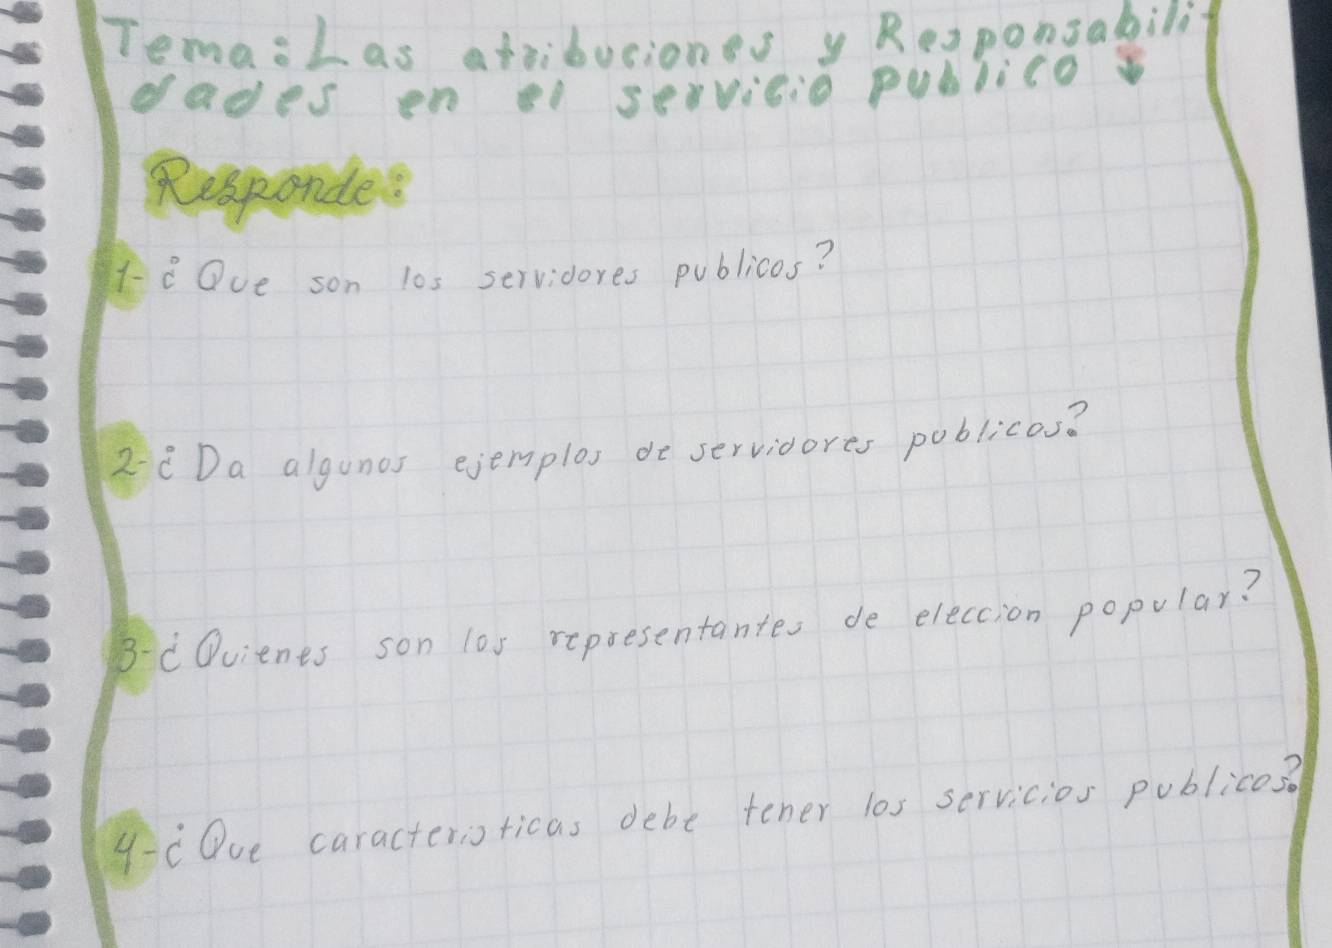 Tema: Las atribuciones y Responsabili-
dades en el servicio publico ↓
Responde:
1-¿Que son los servidores publicos?
2-¿Da algunos ejemplos de servidores publicos?
3-¿Quienes son los representantes de eleccion popular?
4-¿Que caracteristicas debe tener los servicios publicos?